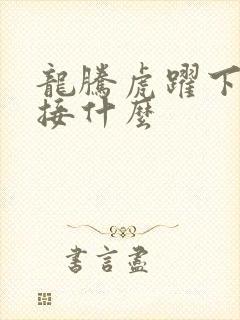 龍騰虎躍下
接什麼
書言盡